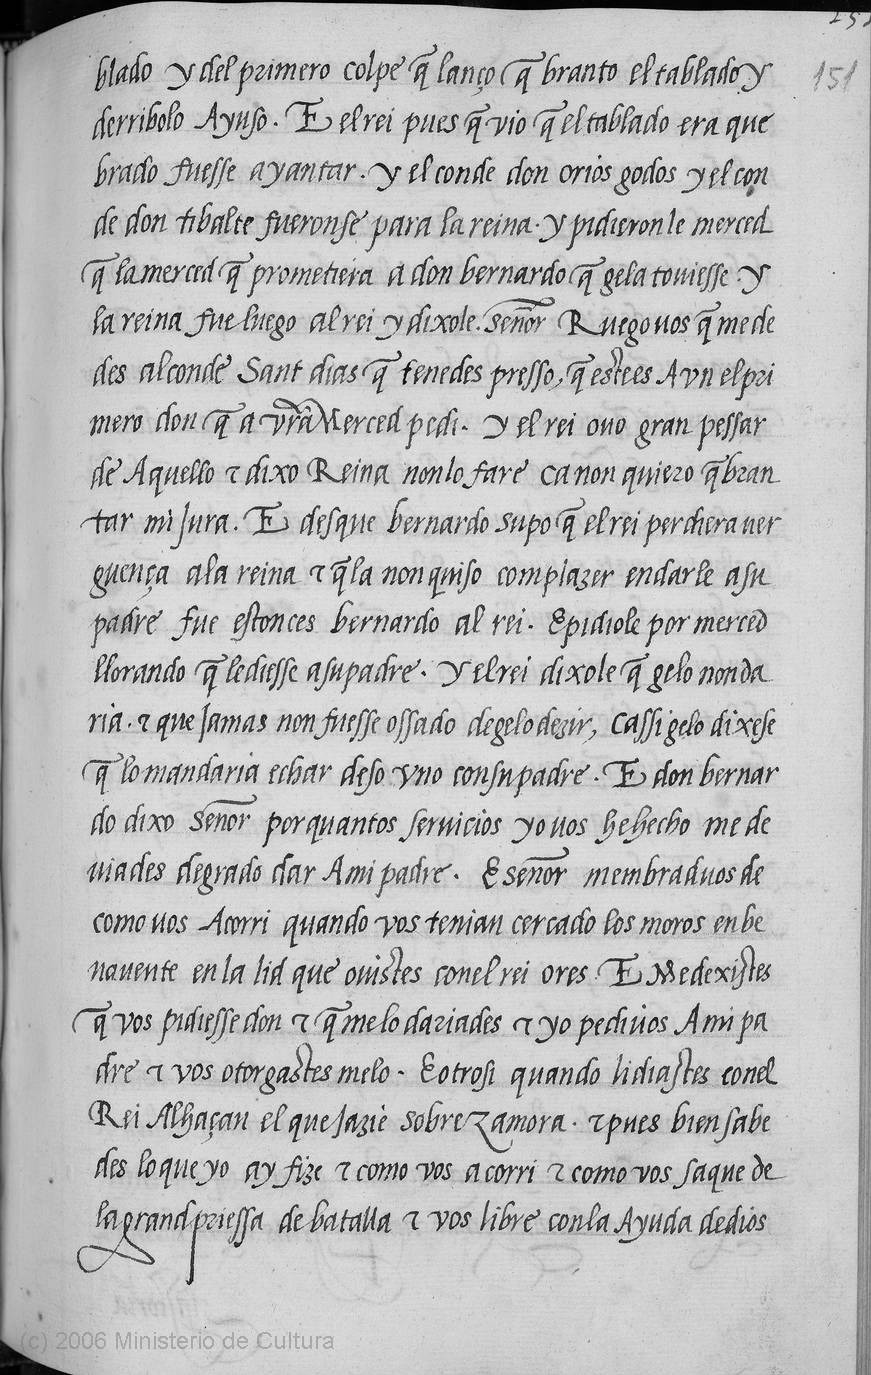 151
blado y del primero colpe q̃ lanço q̃ branto el tablado y
derribolo Ayuso. E el rei pues q̃ vio q̃ el tablado era que
brado fuesse a yantar. y el conde don orios godos y el con
de don tibalte fueronse para la reina. y pidieronle merced
q̃ la merced q̃ prometiera a don bernardo q̃ gela toviesse y
la reina fue luego al rei y dixole. señor Ruego uos q̃ me de
des al conde Sant dias q̃ tenedes presso, q̃ este es Avn el pri
mero don q̃ a vrã Merced pedi. y el rei ouo gran pessar
de Aquello τ dixo Reina non lo fare ca non quiero q̃bran
tar mi Jura. E desque bernardo supo q̃ el rei perdiera uer
guença a la reina τ q̃ la non quiso complazer en darle a su
padre fue estonces bernardo al rei. E pidiole por merced
llorando q̃ le diesse a su padre. y el rei dixole q̃ gelo non da
ria. τ que Jamas non fuesse ossado de gelo dezir, ca ssi gelo dixese
q̃ lo mandaria echar deso vno con su padre. E don bernar
do dixo señor por quantos seruicios yo uos he hecho me de
uiades de grado dar A mi padre. E señor membraduos de
como uos Acorri quando vos tenian cercado los moros en be
nauente en la lid que ouistes con el rei ores. E Me dexistes
q̃ vos pidiesse don τ q̃ me lo dariades τ yo pedi uos A mi pa
dre τ vos otorgastes melo. E otrosi quando lidiastes con el
Rei Alhaçan el que Jazie sobre zamora. τ pues bien sabe
des lo que yo ay fize τ como vos acorri τ como vos saque de
la grand priessa de batalla τ vos libre con la Ayuda de dios
(c) 2006 Ministerio de Cultura